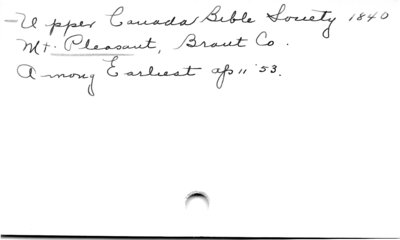 - Upper Canada Bible Society 1840
Mt. Pleasant, Brant Co.
Among Earliest ap 11 '53.